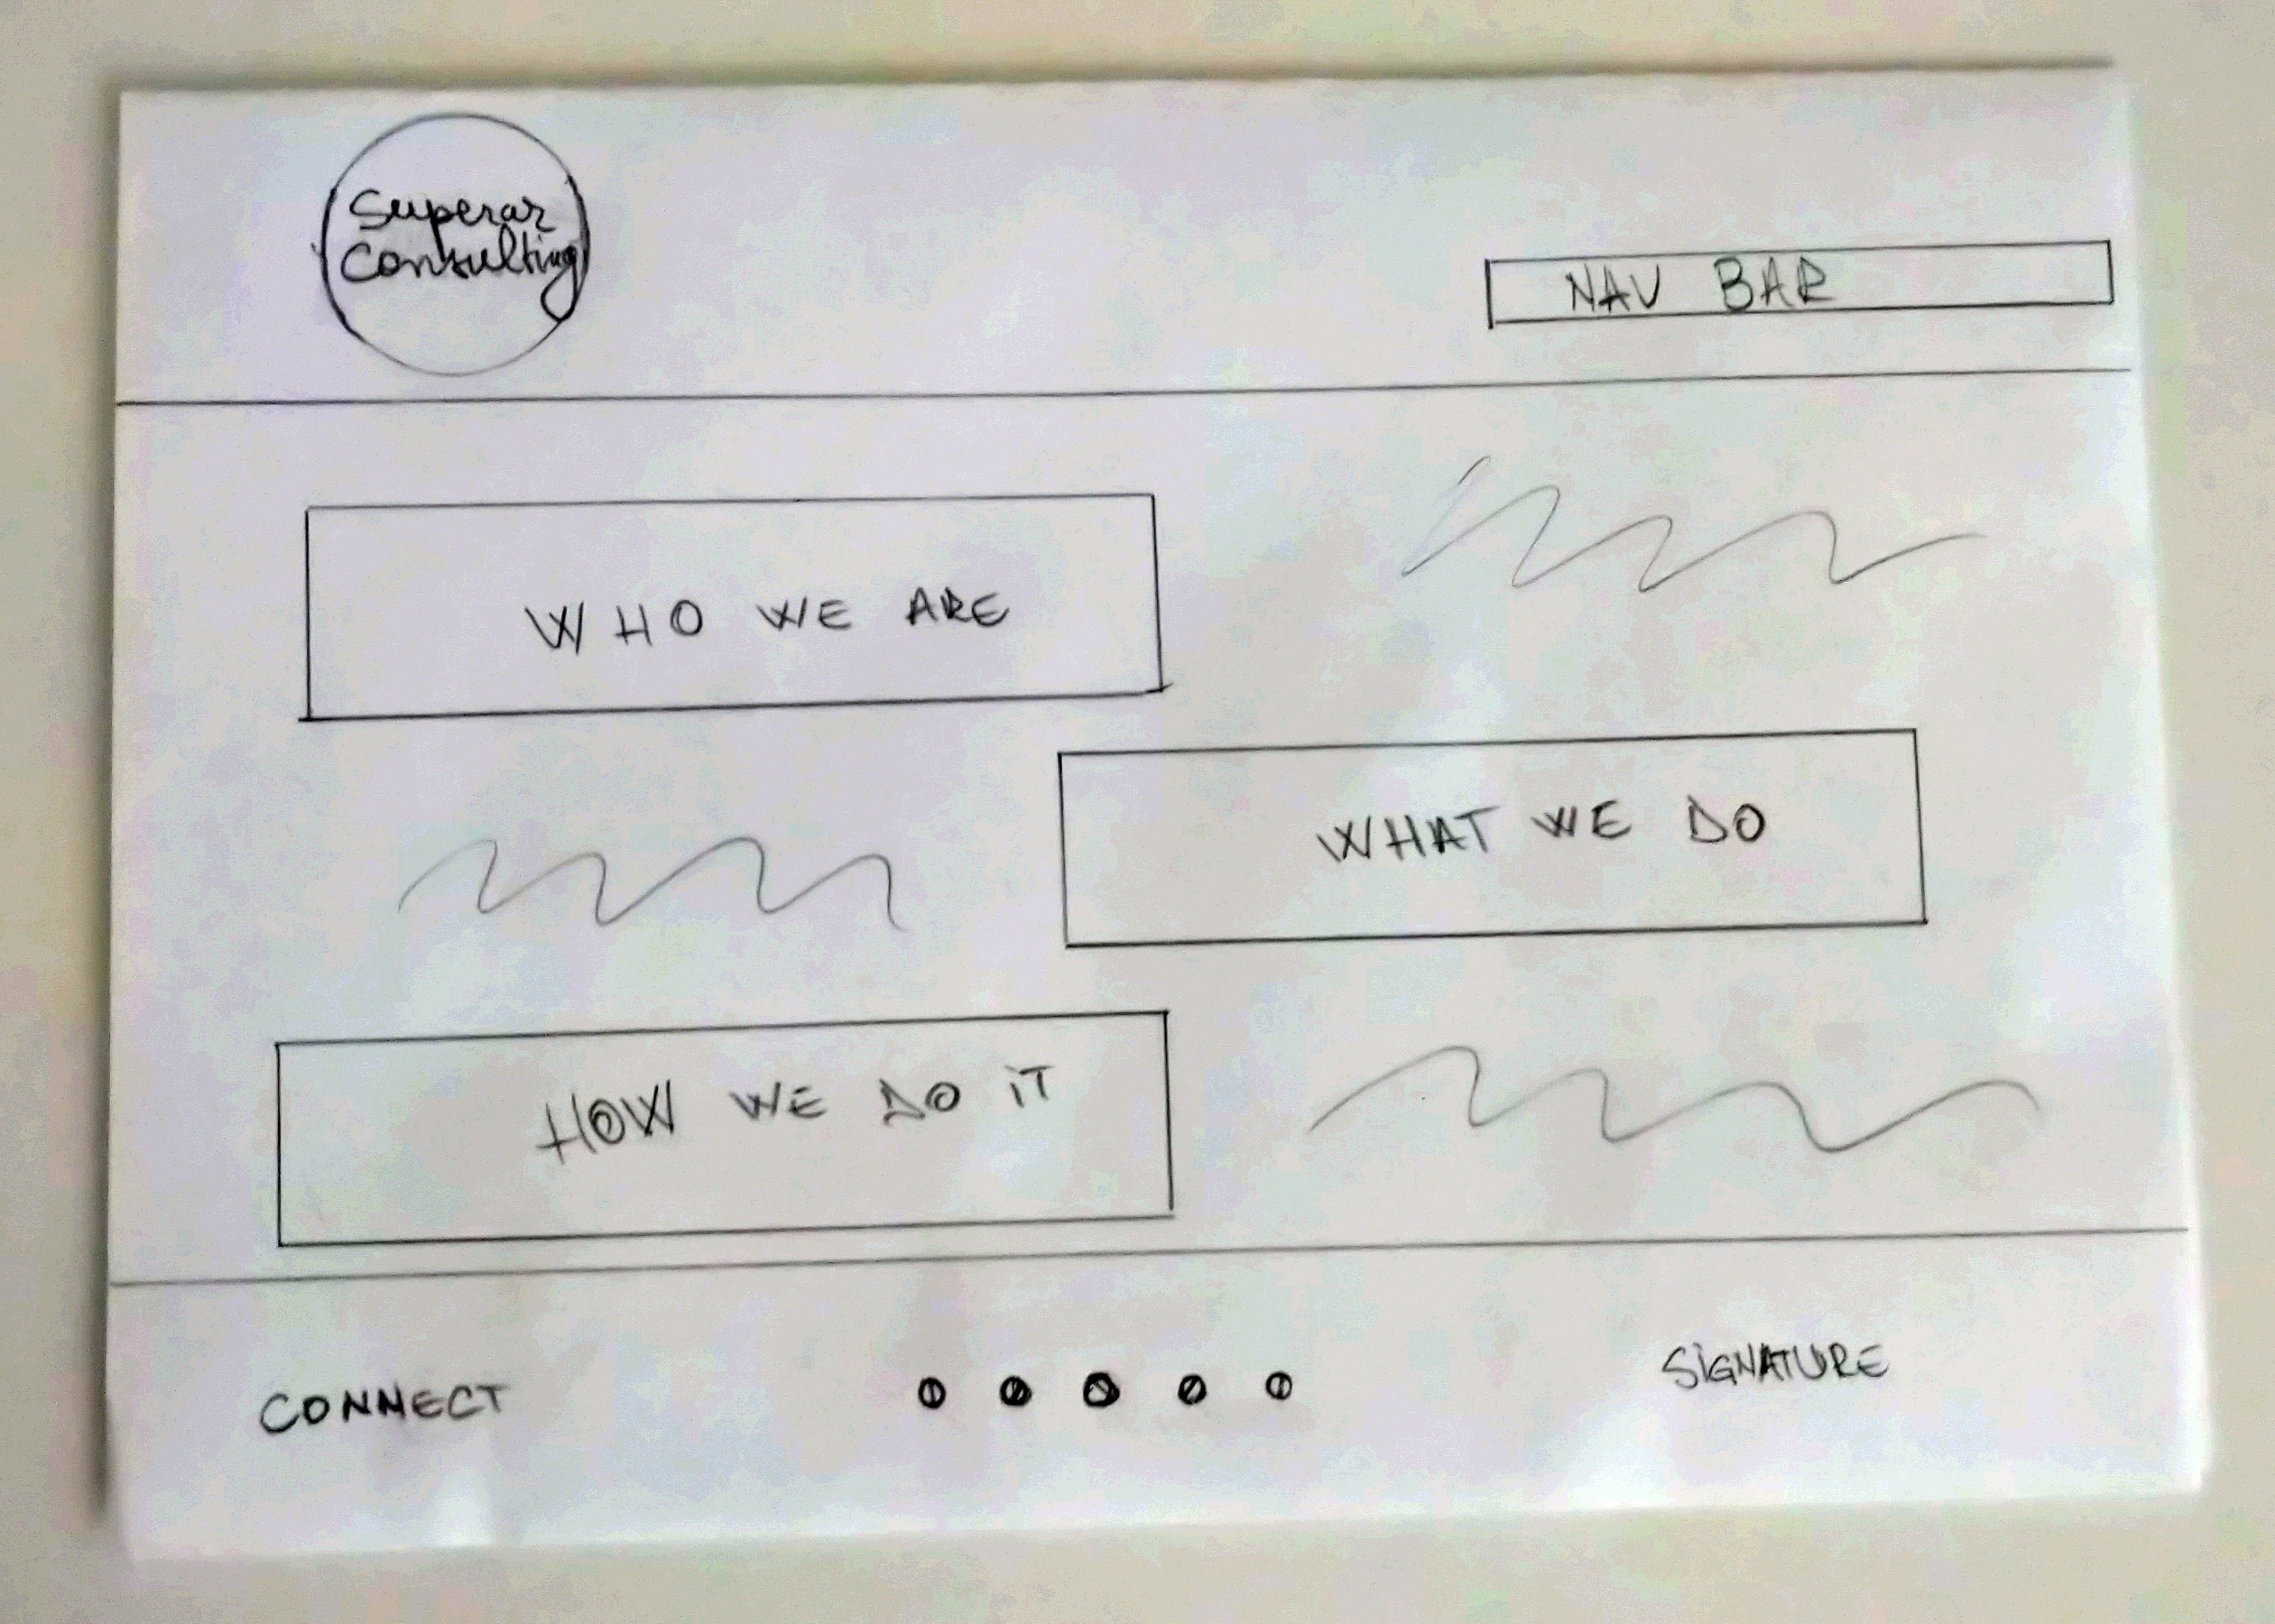 Superar
Consulting
NAV BAR
WHO WE ARE
WHAT WE DO
HOW WE DO IT
CONNECT
SIGNATURE